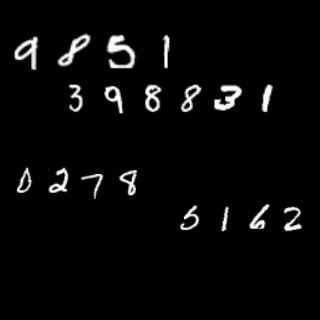 9851
398831
0278
5162